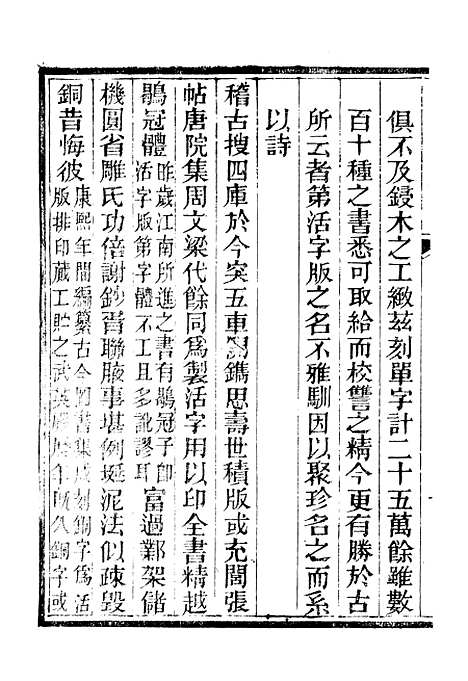 俱不及鋟木之工緻茲刻單字計二十五萬餘雖數
百十種之書悉可取給而校讐之精今更有勝於古
所云者第活字版之名不雅馴因以聚珍名之而系
以詩
稽古搜四庫於今突五車開鐫思壽世積版或充閭張
帖唐院集周文梁代餘同爲製活字用以印全書精越
鶡冠體
昨歲江南所進之書有鶡冠子即
活字版第字體不工且多訛謬耳
富過鄴架儲
機圓省雕氏功倍謝鈔胥聯腋事堪例埏泥法似疎毀
銅昔悔彼
康熙年間編纂古今圖書集成刻銅字爲活
版排印蕆工貯之武英殿歷年既久銅字或